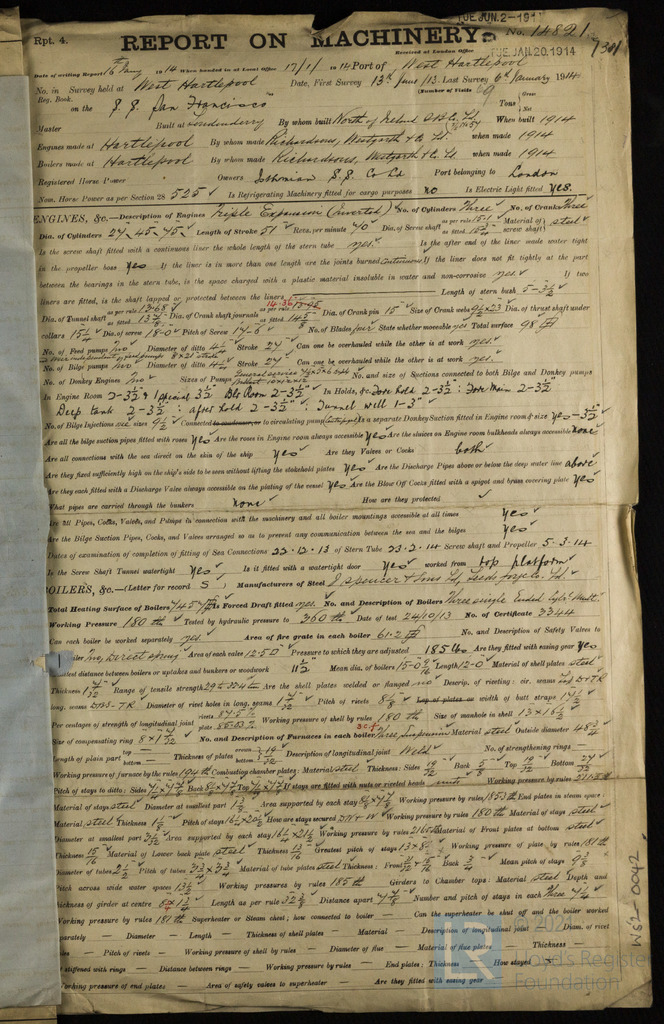 TUE. JUN. 2 - 191
Rpt. 4.
REPORT ON MACHINERY.
No. 14821
Received at London Office TUE. JAN. 20. 1914
Date of writing Report 1914 When handed in at Local Office 17/1/1914 Port of West Hartlepool
No. in Survey held at West Hartlepool Date, First Survey 13th June /13 Last Survey 6th January 1914
Reg. Book. (Number of Visits 69
on the S.S. San Francisco Tons Gross Net
Master Built at Londonderry By whom built North of Ireland When built 1914
Engines made at Hartlepool By whom made Richardsons, Westgarth & Co Ld. when made 1914
Boilers made at Hartlepool By whom made Richardsons, Westgarth & Co Ld. when made 1914
Registered Horse Power Owners S.S. Co Ld Port belonging to London
Nom. Horse Power as per Section 28 525 Is Refrigerating Machinery fitted for cargo purposes no Is Electric Light fitted Yes.
ENGINES, &c.—Description of Engines Triple Expansion (Inverted) No. of Cylinders Three No. of Cranks Three
Dia. of Cylinders 27 - 45 - 75 Length of Stroke 51 Revs. per minute 70 Dia. of Screw shaft as per rule as fitted Material of screw shaft steel
Is the screw shaft fitted with a continuous liner the whole length of the stern tube yes. Is the after end of the liner made water tight
in the propeller boss Yes If the liner is in more than one length are the joints burned Continuous If the liner does not fit tightly at the part
between the bearings in the stern tube, is the space charged with a plastic material insoluble in water and non-corrosive yes. If two
liners are fitted, is the shaft lapped or protected between the liners Length of stern bush 5-3½
Dia. of Tunnel shaft as per rule 13.68 as fitted Dia. of Crank shaft journals as per rule 14.36 as fitted 14⅝ Dia. of Crank pin 15 Size of Crank webs 9½x23 Dia. of thrust shaft under
collars 15¼ Dia. of screw 18-0 Pitch of Screw 17-6 No. of Blades four State whether moveable yes Total surface 98
No. of Feed pumps Two Diameter of ditto Stroke 27 Can one be overhauled while the other is at work yes.
No. of Bilge pumps Two Diameter of ditto 4½ Stroke 27 Can one be overhauled while the other is at work yes.
No. of Donkey Engines Two Sizes of Pumps No. and size of Suctions connected to both Bilge and Donkey pumps
In Engine Room 2-3½ & 1 special 3½ Blr Room 2-3½ In Holds, &c. Fore hold 2-3½ : Fore Main 2-3½
Deep tank 2-3½ : after hold 2-3½ : Tunnel well 1-3
No. of Bilge Injections one sizes 9½ Connected to condenser, or to circulating pump Is a separate Donkey Suction fitted in Engine room & size yes - 3½
Are all the bilge suction pipes fitted with roses Yes Are the roses in Engine room always accessible Yes Are the sluices on Engine room bulkheads always accessible none
Are all connections with the sea direct on the skin of the ship Yes Are they Valves or Cocks both
Are they fixed sufficiently high on the ship's side to be seen without lifting the stokehold plates Yes Are the Discharge Pipes above or below the deep water line above
Are they each fitted with a Discharge Valve always accessible on the plating of the vessel Yes Are the Blow Off Cocks fitted with a spigot and brass covering plate Yes
What pipes are carried through the bunkers none How are they protected
Are all Pipes, Cocks, Valves, and Pumps in connection with the machinery and all boiler mountings accessible at all times Yes
Are the Bilge Suction Pipes, Cocks, and Valves arranged so as to prevent any communication between the sea and the bilges Yes
Dates of examination of completion of fitting of Sea Connections 22.12.13 of Stern Tube 23.2.14 Screw shaft and Propeller 5.3.14
Is the Screw Shaft Tunnel watertight Yes Is it fitted with a watertight door Yes worked from top platform
BOILERS, &c.—(Letter for record S) Manufacturers of Steel J Spencer & Sons Ld, Leeds Forge Co. Ld.
Total Heating Surface of Boilers Is Forced Draft fitted yes. No. and Description of Boilers Three single Ended Cyl. Mult.
Working Pressure 180 lb Tested by hydraulic pressure to 360 lb Date of test 24/10/13 No. of Certificate 3344
Can each boiler be worked separately yes. Area of fire grate in each boiler 61.2 No. and Description of Safety Valves to
boiler Two, Direct Spring Area of each valve 12.50 Pressure to which they are adjusted 185 lb Are they fitted with easing gear Yes
distance between boilers or uptakes and bunkers or woodwork 11½ Mean dia. of boilers Length 12-0 Material of shell plates steel
Thickness Range of tensile strength Are the shell plates welded or flanged no Descrip. of riveting: cir. seams
long. seams DBS-TR Diameter of rivet holes in long. seams Pitch of rivets Lap of plates or width of butt straps
Per centages of strength of longitudinal joint rivets plate Working pressure of shell by rules 180 lb Size of manhole in shell 13 x 16½
Size of compensating ring No. and Description of Furnaces in each boiler Three suspension Material steel Outside diameter
Length of plain part top bottom Thickness of plates crown bottom 19/32 Description of longitudinal joint Weld No. of strengthening rings
Working pressure of furnace by the rules 194 lb Combustion chamber plates: Material steel Thickness: Sides 19/32 Back 5/8 Top 19/32 Bottom
Pitch of stays to ditto: Sides Back Top If stays are fitted with nuts or riveted heads nuts Working pressure by rules
Material of stays steel Diameter at smallest part Area supported by each stay Working pressure by rules End plates in steam space
Material steel Thickness Pitch of stays How are stays secured Working pressure by rules 180 lb Material of stays steel
Diameter at smallest part Area supported by each stay Working pressure by rules Material of Front plates at bottom steel
Thickness 15/16 Material of Lower back plate steel Thickness 13/16 Greatest pitch of stays Working pressure of plate by rules 181 lb
Diameter of tubes 2½ Pitch of tubes Material of tube plates steel Thickness: Front Back ¾ Mean pitch of stays
Pitch across wide water spaces 13½ Working pressures by rules 185 lb Girders to Chamber tops: Material steel Depth and
thickness of girder at centre Length as per rule Distance apart Number and pitch of stays in each Three
Working pressure by rules 181 lb Superheater or Steam chest; how connected to boiler — Can the superheater be shut off and the boiler worked
separately — Diameter — Length — Thickness of shell plates — Material — Description of longitudinal joint — Diam. of rivet
— Pitch of rivets — Working pressure of shell by rules — Diameter of flue — Material of flue plates — Thickness
stiffened with rings — Distance between rings — Working pressure by rules — End plates: Thickness — How stayed
Working pressure of end plates — Area of safety valves to superheater — Are they fitted with easing gear
W52-0042
© 2021
Lloyd's Register
Foundation